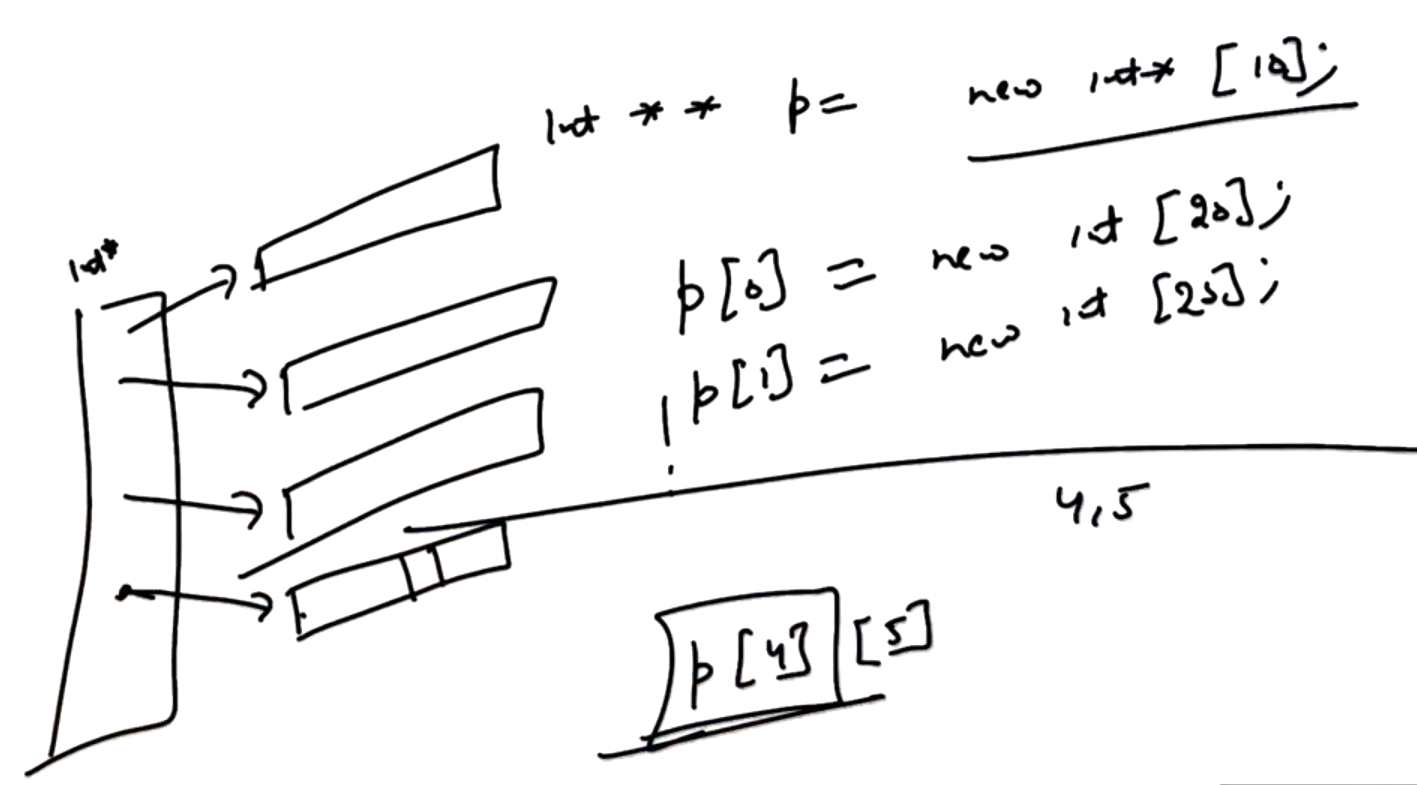 int ** p = new int* [10];
int*
p[0] = new int [20];
p[1] = new int [25];
4,5
p[4][5]